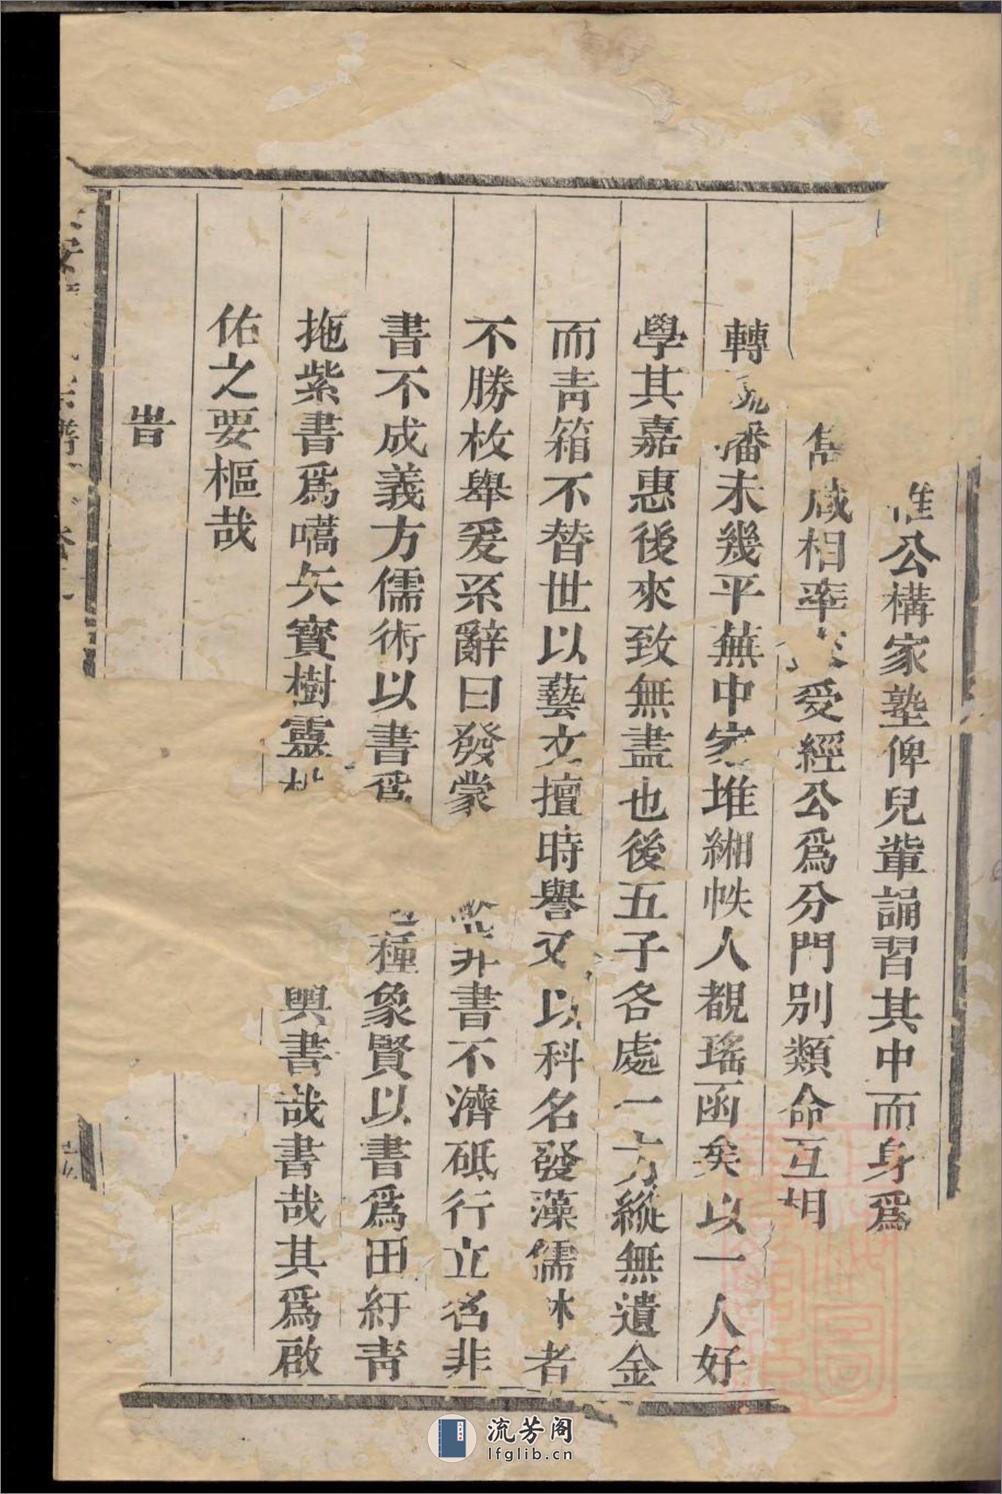 公構家塾俾兒輩誦習其中而身爲
咸相率受經公爲分門別類命互相
轉未幾平蕪中家堆緗帙人覩瑤函矣以一人好
學其嘉惠後來致無盡也後五子各處一方縱無遺金
而靑箱不替世以藝文擅時譽又以科名發藻儒林者
不勝枚舉爰系辭曰發蒙非書不濟砥行立名非
書不成義方儒術以書爲種象賢以書爲田紆靑
拖紫書爲嚆矢寳樹靈輿書哉書哉其爲啟
佑之要樞哉
旹
流芳阁
lfglib.cn